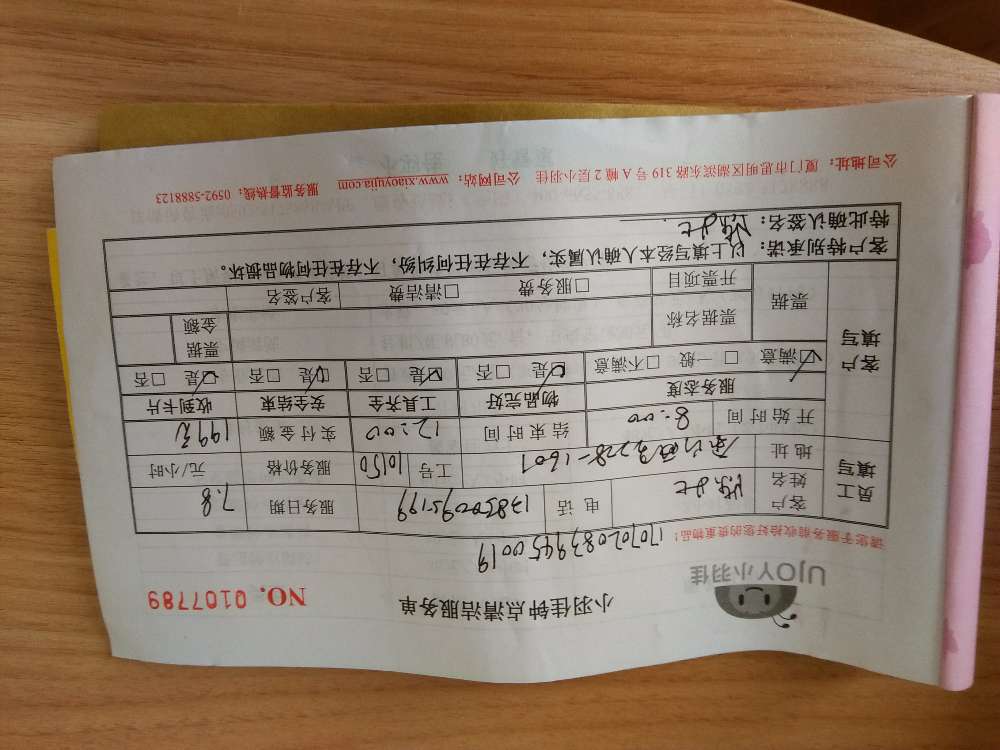 小羽佳钟点清洁服务单
UJOY小羽佳
NO. 0107789
1707020837945 0019
请您于服务前收拾好您的贵重物品!
员工填写
客户姓名 电话 13850095199 服务日期 7.8
地址 228-1601 工号 10150 服务价格 元/小时
开始时间 8:00 结束时间 12:00 实付金额 199元
客户填写
服务态度 物品完好 工具齐全 安全结束 收到卡片
☑满意 □一般 □不满意 ☑是 □否 ☑是 □否 ☑是 □否 ☑是 □否
票据 票据名称 票据金额
开票项目 □服务费 □清洁费 客户签名
客户特别承诺:以上填写经本人确认属实,不存在任何纠纷,不存在任何物品损坏。
特此确认签名:
公司地址:厦门市思明区湖滨东路319号A幢2层小羽佳 公司网站:www.xiaoyujia.com 服务监督热线:0592-5888123